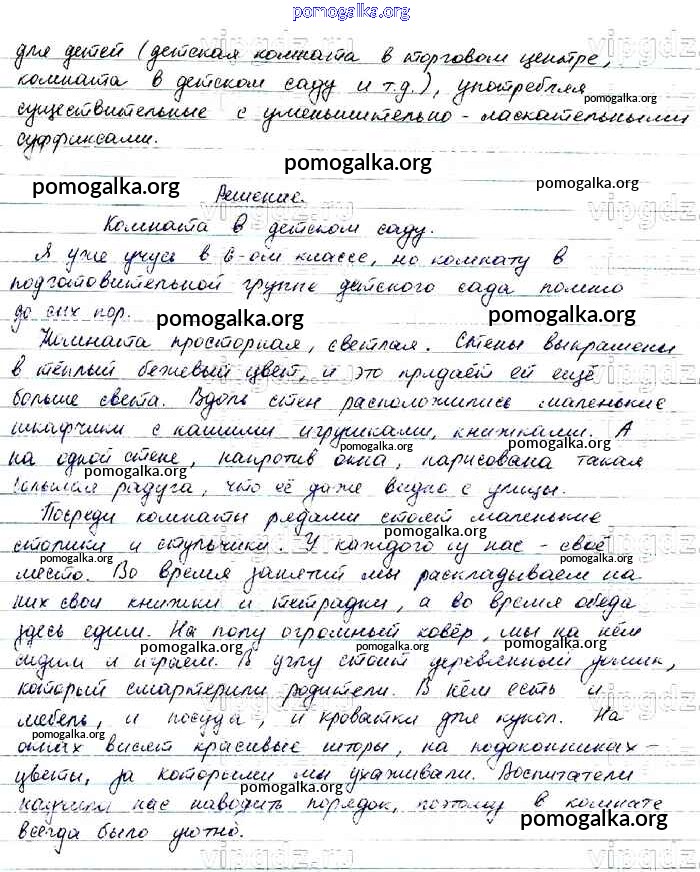 pomogalka.org
для детей (детская комната в торговом центре,
комната в детском саду и т.д.), употребляя
pomogalka.org
существительные с уменьшительно-ласкательными
суффиксами.
pomogalka.org
pomogalka.org
pomogalka.org
Решение.
Комната в детском саду.
Я уже учусь в 6-ом классе, но комнату в
подготовительной группе детского сада помню
до сих пор.
pomogalka.org
pomogalka.org
Комната просторная, светлая. Стены выкрашены
в тёплый бежевый цвет, и это придаёт ей ещё
больше света. Вдоль стен расположились маленькие
шкафчики с нашими игрушками, книжками. А
pomogalka.org
на одной стене, напротив окна, нарисована такая
pomogalka.org
pomogalka.org
большая радуга, что её даже видно с улицы.
Посреди комнаты рядами стоят маленькие
столики и стульчики. У каждого из нас - своё
pomogalka.org
pomogalka.org
место. Во время занятий мы раскладываем на
них свои книжки и тетрадки, а во время обеда
здесь едим. На полу огромный ковёр, мы на нём
pomogalka.org
pomogalka.org
сидим и играем. В углу стоит деревянный домик,
который смастерили родители. В нём есть и
мебель, и посуда, и кроватки для кукол. На
pomogalka.org
окнах висят красивые шторы, на подоконниках -
pomogalka.org
цветы, за которыми мы ухаживали. Воспитатели
pomogalka.org
научили нас наводить порядок, поэтому в комнате
всегда было уютно.
pomogalka.org
vipgdz.ru